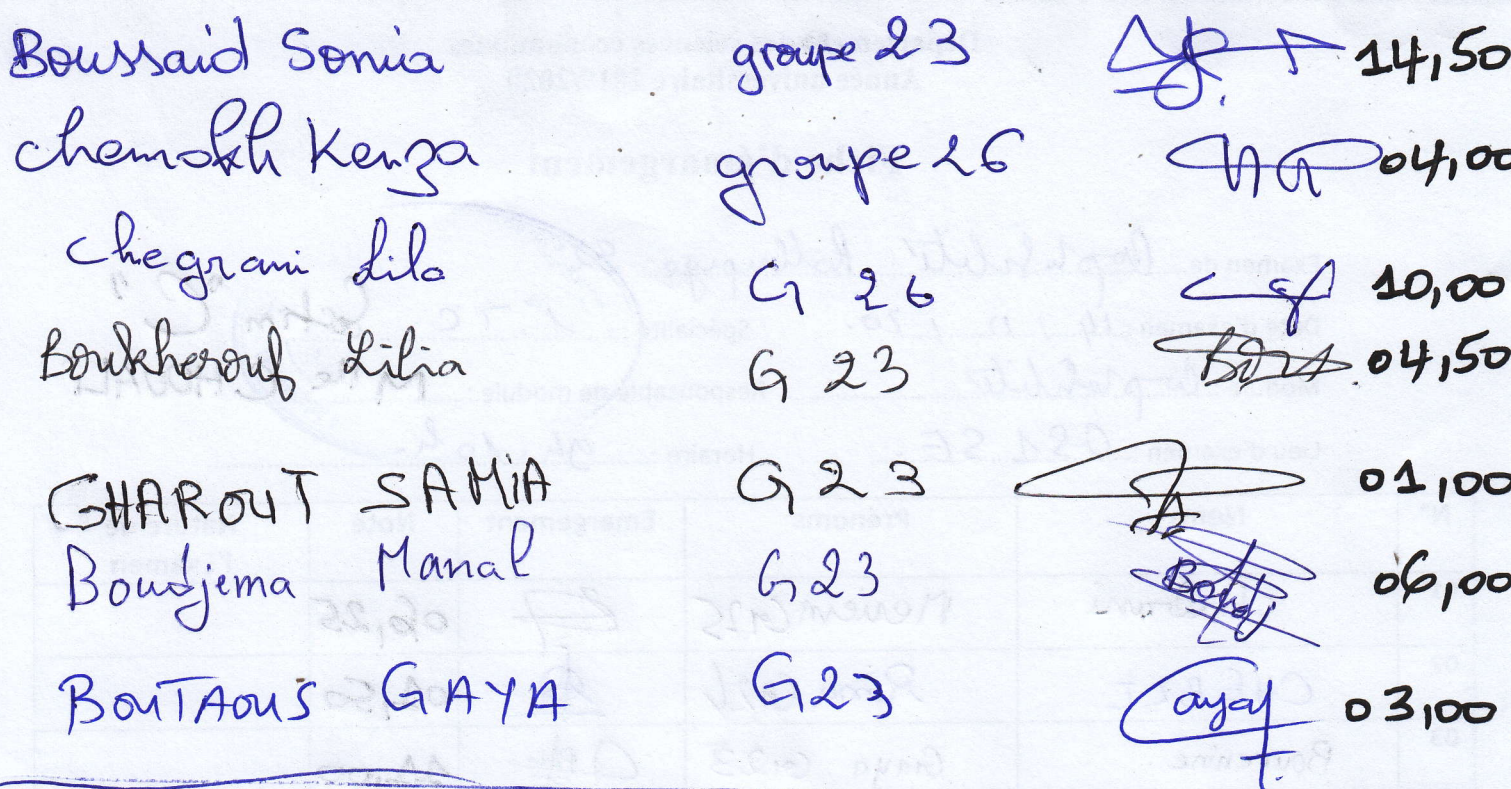 Boussaid Sonia groupe 23 14,50
Chemokh Kenza groupe 26 04,00
Chegrani Lila G 26 10,00
Boukherouf Lilia G 23 04,50
GHAROUT SAMIA G 23 01,00
Boudjema Manal G23 06,00
BOUTAOUS GAYA G23 03,00